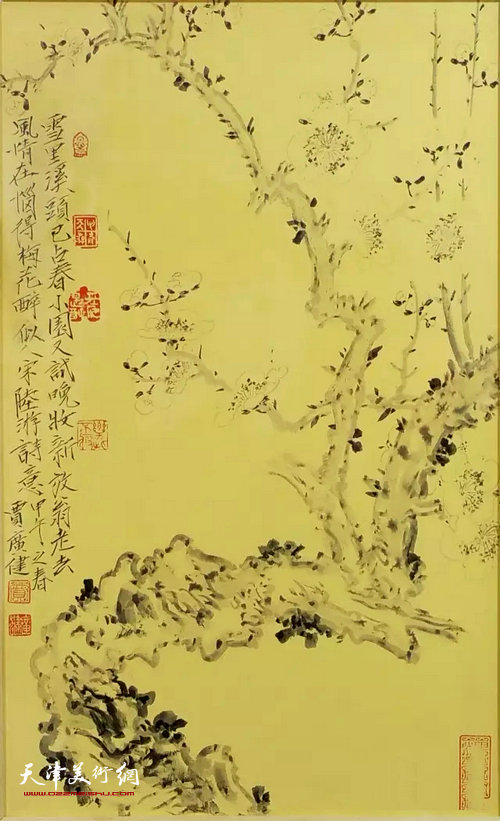 雪里溪頭已占春小園又試晚妝新放翁老去
風情在惱得梅花醉似人宋陸游詩意甲午之春
賈廣健
天津美術網
www.ozzmeishu.com